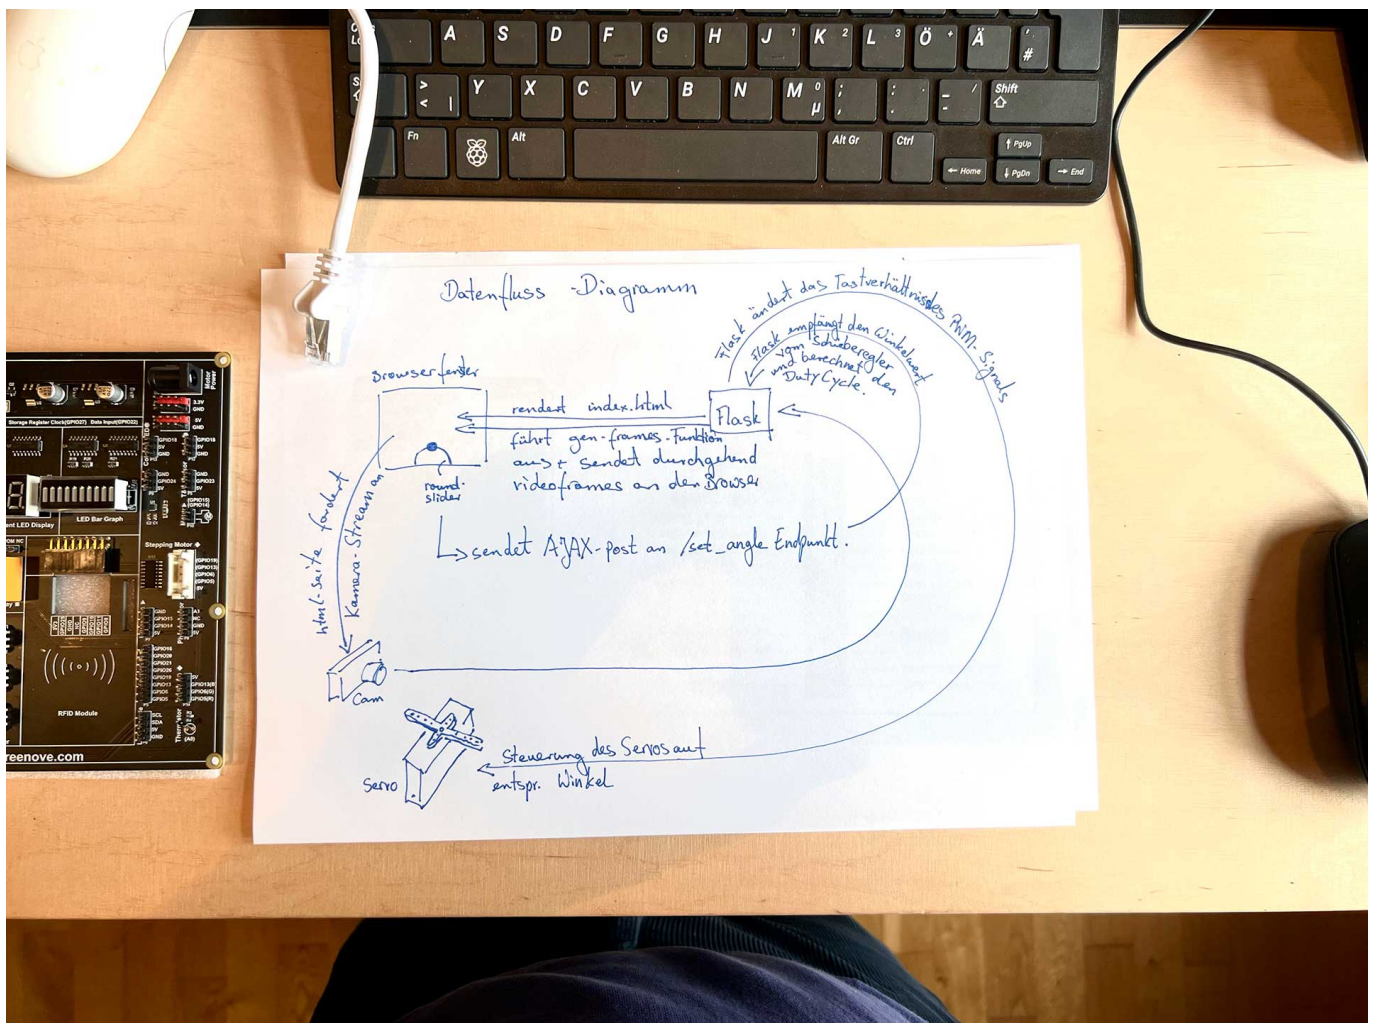 A S D F G H J 1 K 2 L 3 Ö + Ä ' #
> < | Y X C V B N M 0 µ ; , : . _ - / Shift
Fn Alt Alt Gr Ctrl ↑ PgUp
← Home ↓ PgDn → End
Datenfluss-Diagramm
Flask ändert das Tastverhältnis des PWM-Signals
Flask empfängt den Winkelwert
vom Schieberegler
und berechnet den
DutyCycle.
Browserfenster
rendert index.html
Flask
führt gen-frames-Funktion
aus + sendet durchgehend
videoframes an den Browser
round-
slider
sendet AJAX-post an /set_angle Endpunkt.
html-seite fordert
Kamera-Stream an
Cam
Servo
Steuerung des Servos auf
entspr. Winkel
Motor
Power
3.3V
GND
5V
GND
Storage Register Clock(GPIO27) Data Input(GPIO22)
GPIO18
5V
GND
GPIO18
5V
GND
GND
GPIO24
5V
GND
GPIO23
5V
LED Bar Graph
ent LED Display
Stepping Motor
RFID Module
SCL
SDA
5V
GND
reenove.com